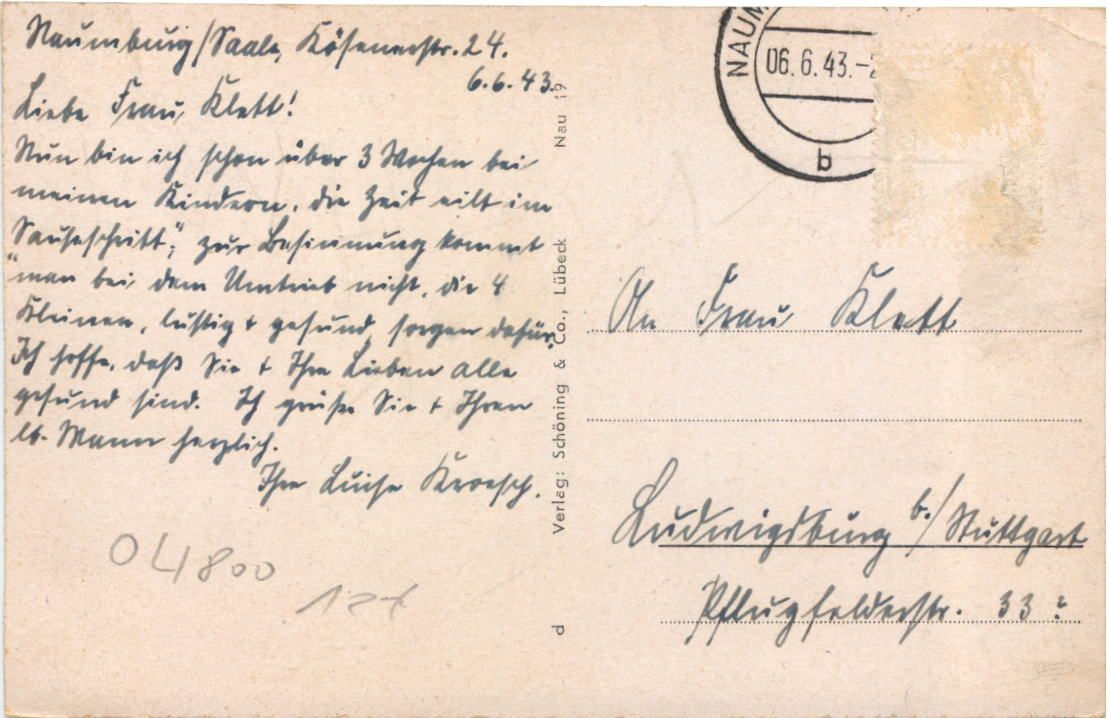 Naumburg/Saale, Kösenerstr. 24.
6.6.43.
Liebe Frau Klett!
Nun bin ich schon über 3 Wochen bei
meinen Kindern, die Zeit „eilt im
Sauseschritt“; zur Besinnung kommt
man bei dem Umtrieb nicht, die 4
Kleinen, lustig + gesund, sorgen dafür.
Ich hoffe, daß Sie + Ihre Lieben alle
gesund sind. Ich grüße Sie + Ihren
lb. Mann herzlich.
Ihre Luise
04800
Verlag: Schöning & Co., Lübeck Nau 19
d
NAUM
06.6.43.-2
b
An Frau Klett
Ludwigsburg b./Stuttgart
Pflugfelderstr. 33?